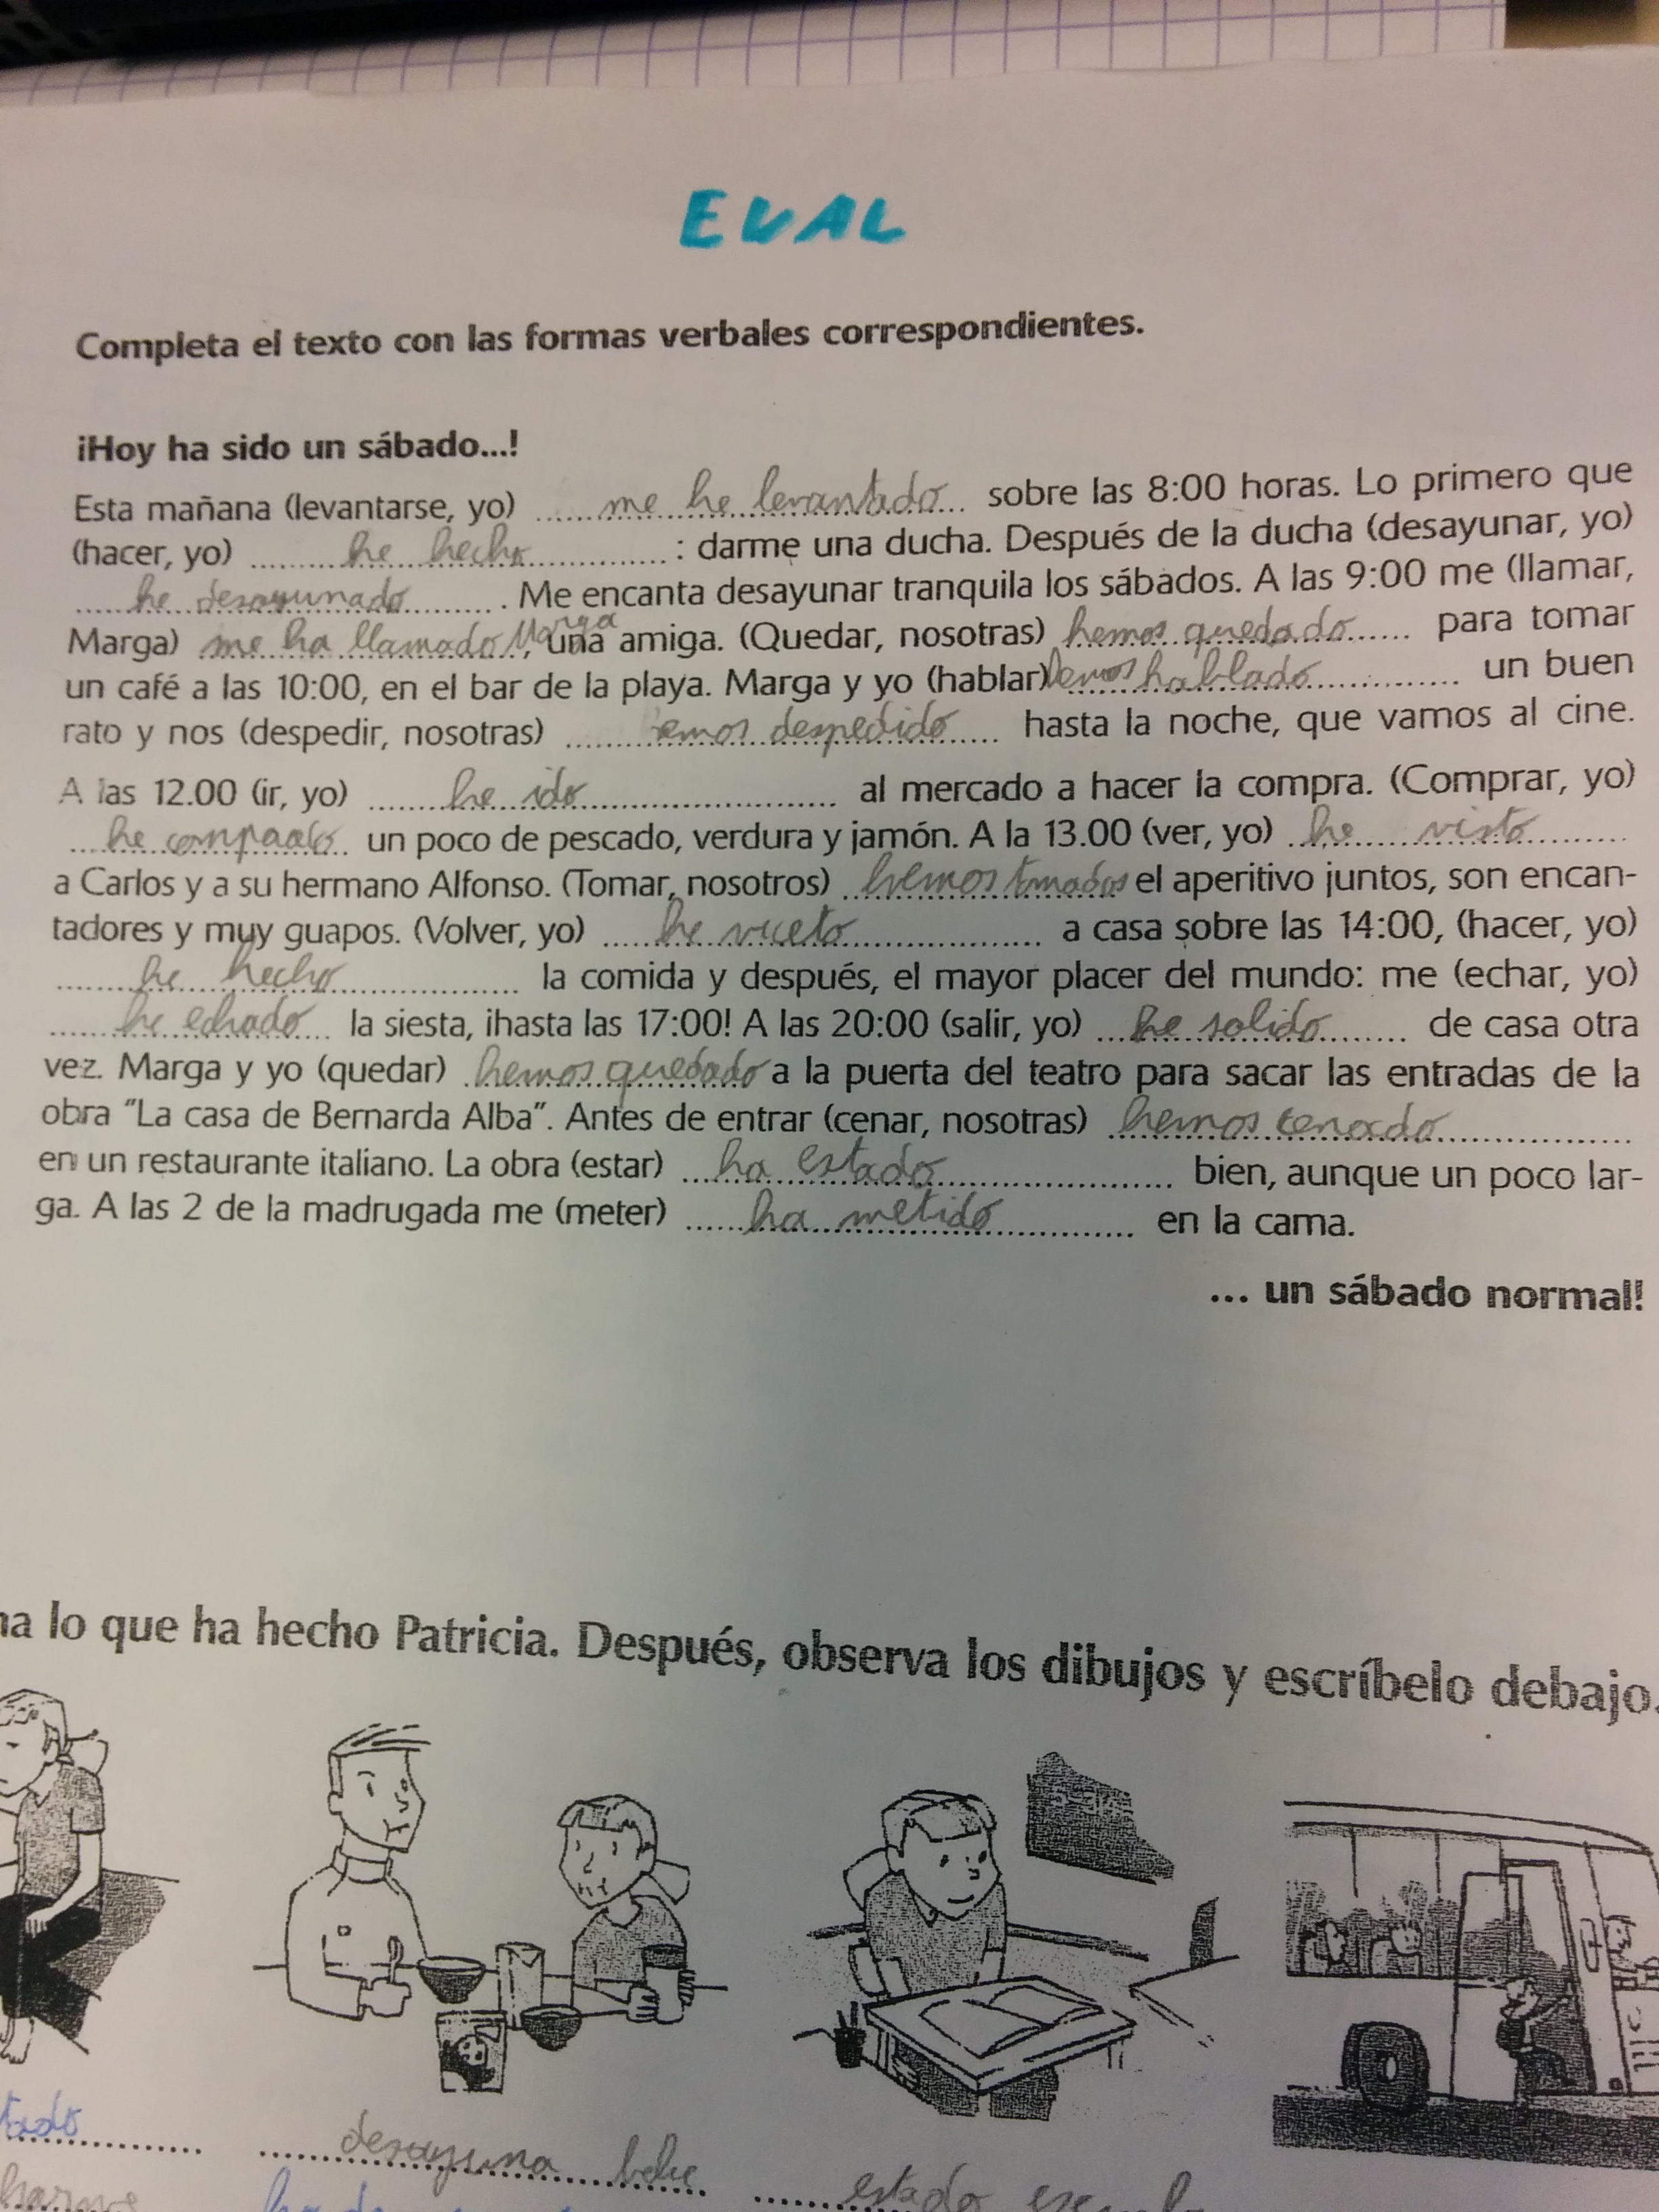 EVAL
Completa el texto con las formas verbales correspondientes.
¡Hoy ha sido un sábado...!
Esta mañana (levantarse, yo) me he levantado sobre las 8:00 horas. Lo primero que
(hacer, yo) he hecho : darme una ducha. Después de la ducha (desayunar, yo)
he desayunado . Me encanta desayunar tranquila los sábados. A las 9:00 me (llamar,
Marga) me ha llamado Marga, una amiga. (Quedar, nosotras) hemos quedado para tomar
un café a las 10:00, en el bar de la playa. Marga y yo (hablar) hemos hablado un buen
rato y nos (despedir, nosotras) hemos despedido hasta la noche, que vamos al cine.
A las 12.00 (ir, yo) he ido al mercado a hacer la compra. (Comprar, yo)
he un poco de pescado, verdura y jamón. A la 13.00 (ver, yo) he visto
a Carlos y a su hermano Alfonso. (Tomar, nosotros) hemos tomados el aperitivo juntos, son encan-
tadores y muy guapos. (Volver, yo) he a casa sobre las 14:00, (hacer, yo)
he hecho la comida y después, el mayor placer del mundo: me (echar, yo)
he echado la siesta, ¡hasta las 17:00! A las 20:00 (salir, yo) he salido de casa otra
vez. Marga y yo (quedar) hemos quedado a la puerta del teatro para sacar las entradas de la
obra “La casa de Bernarda Alba”. Antes de entrar (cenar, nosotras) hemos cenado
en un restaurante italiano. La obra (estar) ha estado bien, aunque un poco lar-
ga. A las 2 de la madrugada me (meter) ha metido en la cama.
... un sábado normal!
na lo que ha hecho Patricia. Después, observa los dibujos y escríbelo debajo.
tado desayuna bebe estado